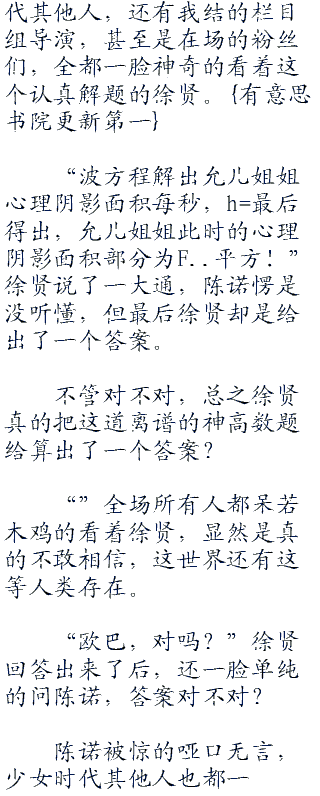 代其他人，还有我结的栏目
组导演，甚至是在场的粉丝
们，全都一脸神奇的看着这
个认真解题的徐贤。{有意思
书院更新第一}
“波方程解出允儿姐姐
心理阴影面积每秒，h=最后
得出，允儿姐姐此时的心理
阴影面积部分为F..平方！”
徐贤说了一大通，陈诺愣是
没听懂，但最后徐贤却是给
出了一个答案。
不管对不对，总之徐贤
真的把这道离谱的神高数题
给算出了一个答案？
“”全场所有人都呆若
木鸡的看着徐贤，显然是真
的不敢相信，这世界还有这
等人类存在。
“欧巴，对吗？”徐贤
回答出来了后，还一脸单纯
的问陈诺，答案对不对？
陈诺被惊的哑口无言，
少女时代其他人也都一